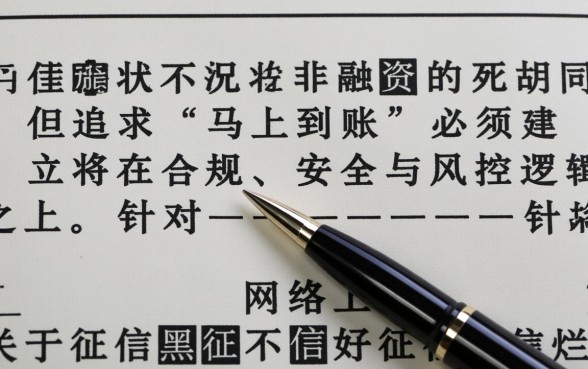 佳状不况妆非融资的死胡同
但追求“马上到账”必须建
立将在合规、安全与风控逻辑
之上。针对一一一一一一一针
网络上
关于征信黑征不信好征信烂